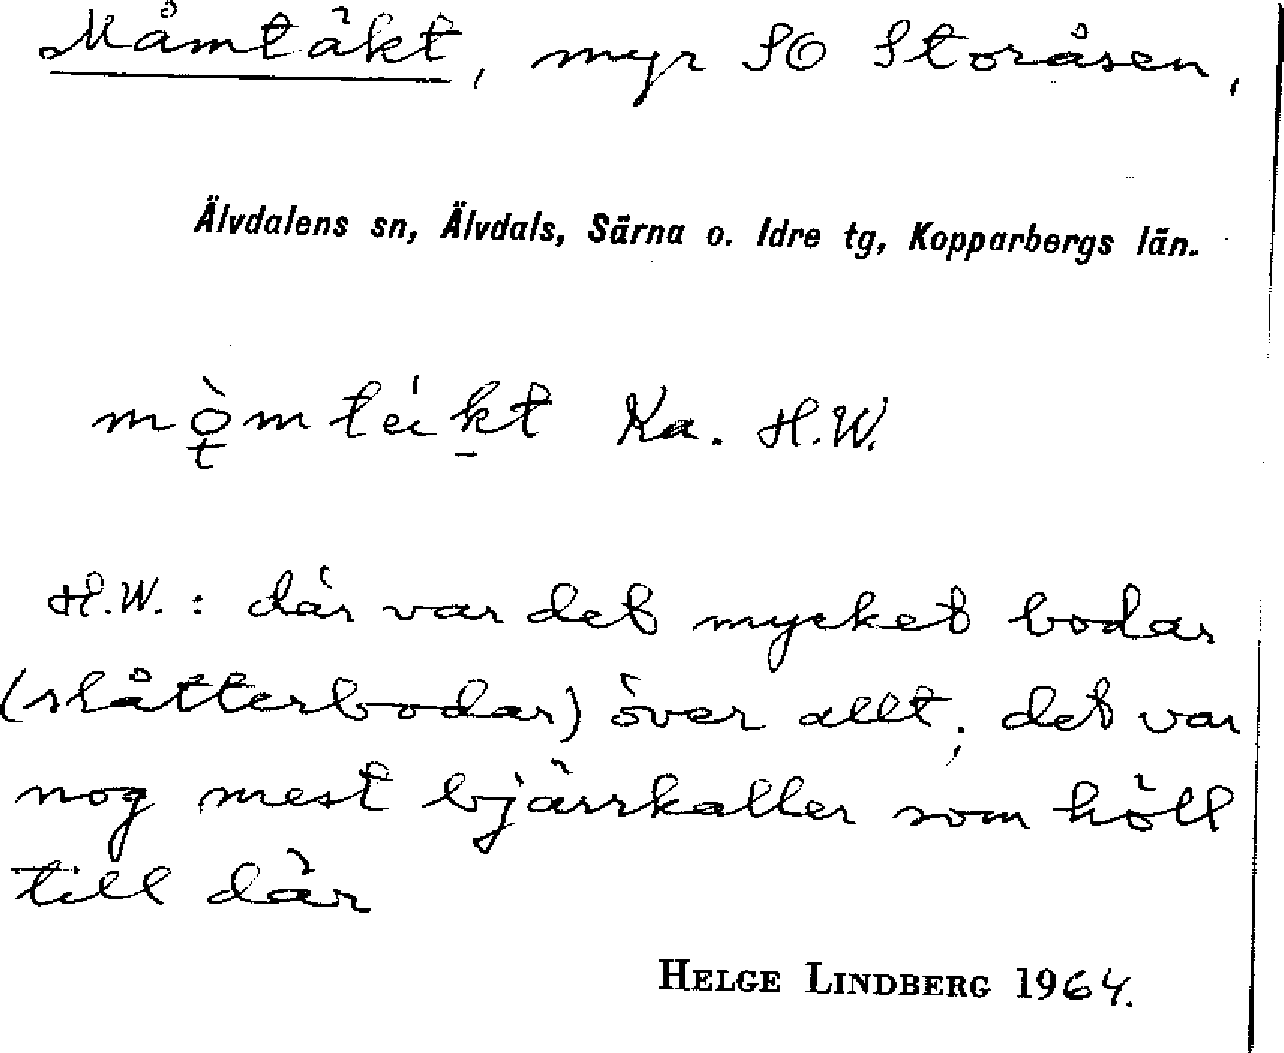 Måmtäkt, myr SO Storåsen,
Älvdalens sn, Älvdals, Särna o. Idre tg, Kopparbergs län.
Ka. H.W.
H.W. : där var det mycket bodar
(slåtterbodar) över allt; det var
nog mest bjärrkaller som höll
till där
HELGE LINDBERG 1964.